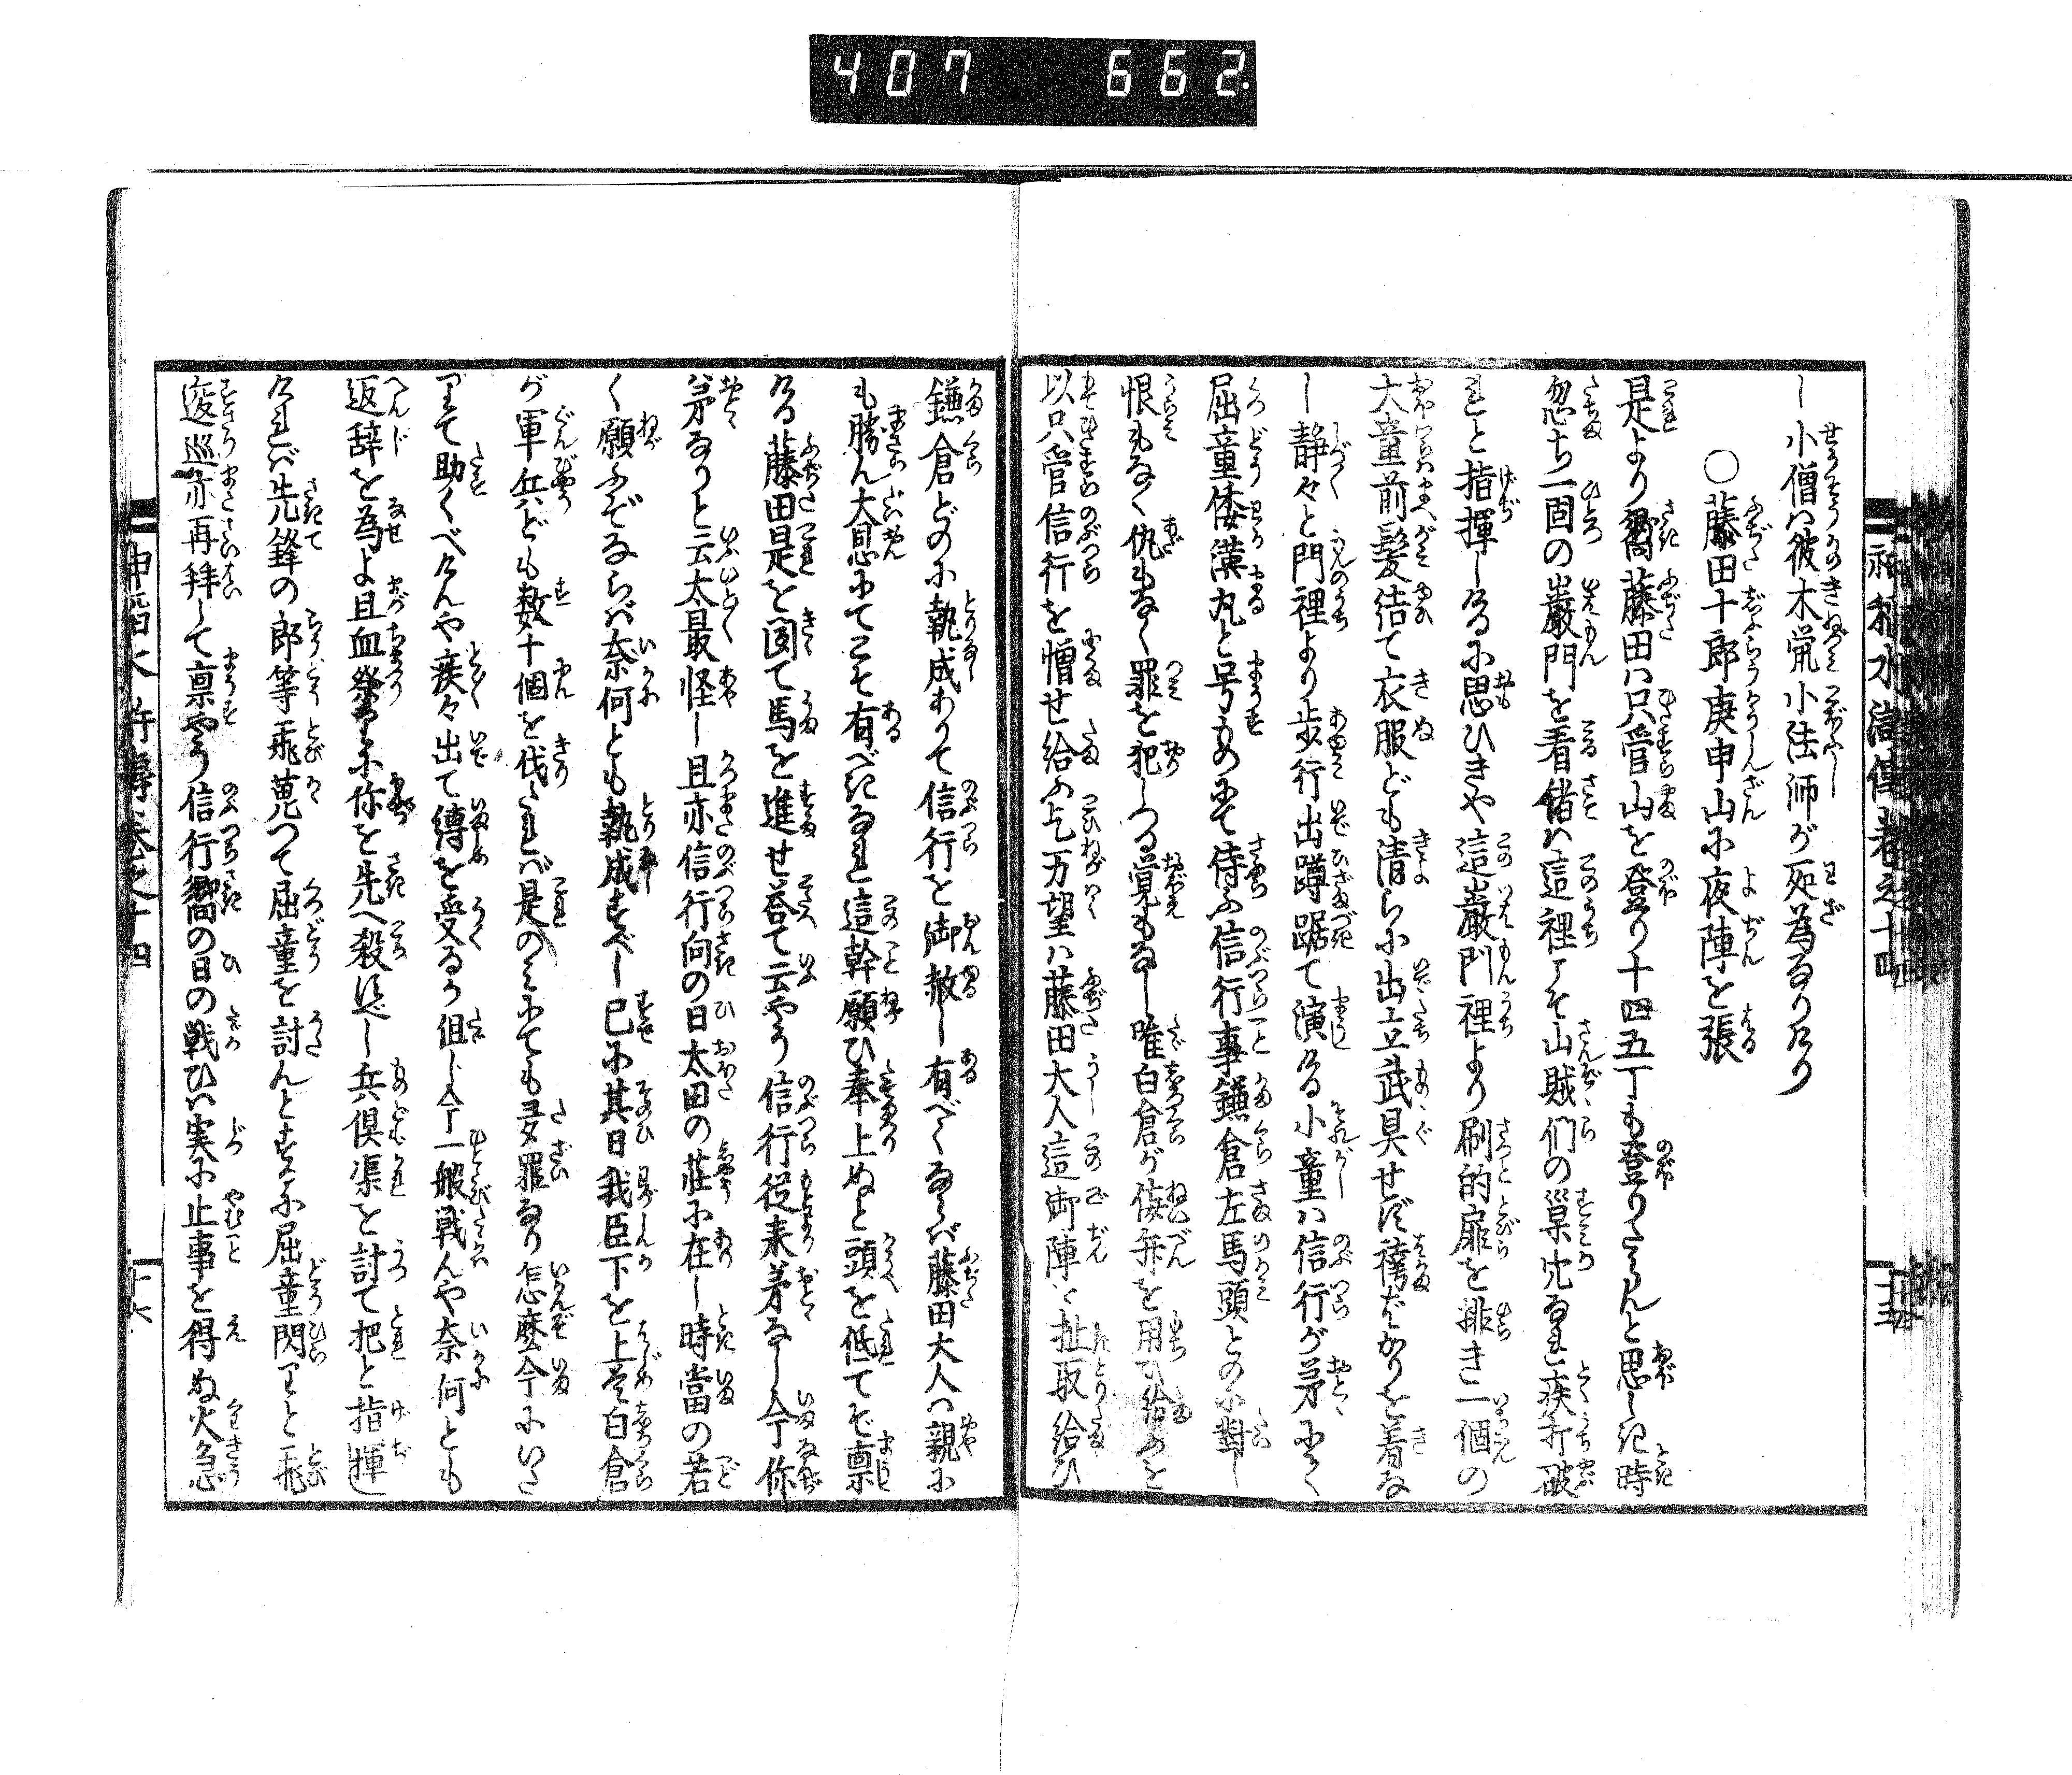 407 662
し小僧は彼木鼡小法師が所為なりけり
〇藤田十郎庚申山に夜陣を張
是より嚮藤田は只管山を登り十四五丁も登りたらんと思しき時
忽ち一固の巌門を看儲は這裡こそ山賊們の巣穴なれ疾打破
れと指揮しけるに思ひきや這巌門裡より刷的扉を排き一個の
大童前髪結て衣服ども清らに出立武具せず襷ばかりを着な
し静々と門裡より歩行出蹲踞て演ける小童は信行が弟にて
屈童倭漢丸と号ものにて侍ふ信行事鎌倉左馬頭どのに對し
恨もなく仇もなく罪を犯しつる覚もなし唯白倉が侫弁を用ひ給ふを
以只管信行を憎せ給ふ乞万望は藤田大人這御陣を扯取給ひ
鎌倉どのに執成ありて信行を御赦し有べくならば藤田大人は親に
も勝ん大恩にてこそ有べきなれ這幹願ひ奉上ぬと頭を低てぞ禀
ける藤田是を聞て馬を進せ答て云やう信行従来弟なし今你
は弟なりと云太最怪し且亦信行向の日太田の荘に在し時當の若
く願ふぞならば奈何とも執成すべし已に其日我臣下を上そ白倉
が軍兵ども数十個を伐たれば是のみにても叐罪なり怎麼今にいた
りて助くべけんや疾々出て縛を受るか但し今一般戦んや奈何とも
返辞を為よ且血祭りに你を先へ殺須べし兵倶渠を討て把と指揮
ければ先鋒の郎等飛蒐つて屈童を討んとするに屈童閃りと飛
逡巡亦再拜して禀やう信行嚮の日の戦ひは実に止事を得ぬ火急
巻之十四
十六